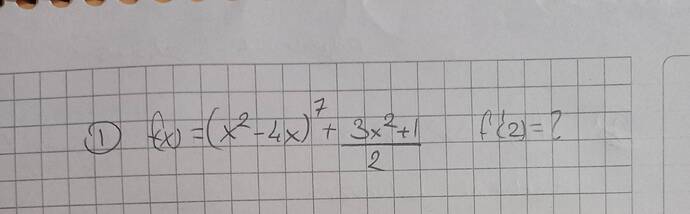 ① f(x) = (x²-4x)⁷ + (3x²+1)/2 f'(2) = ?